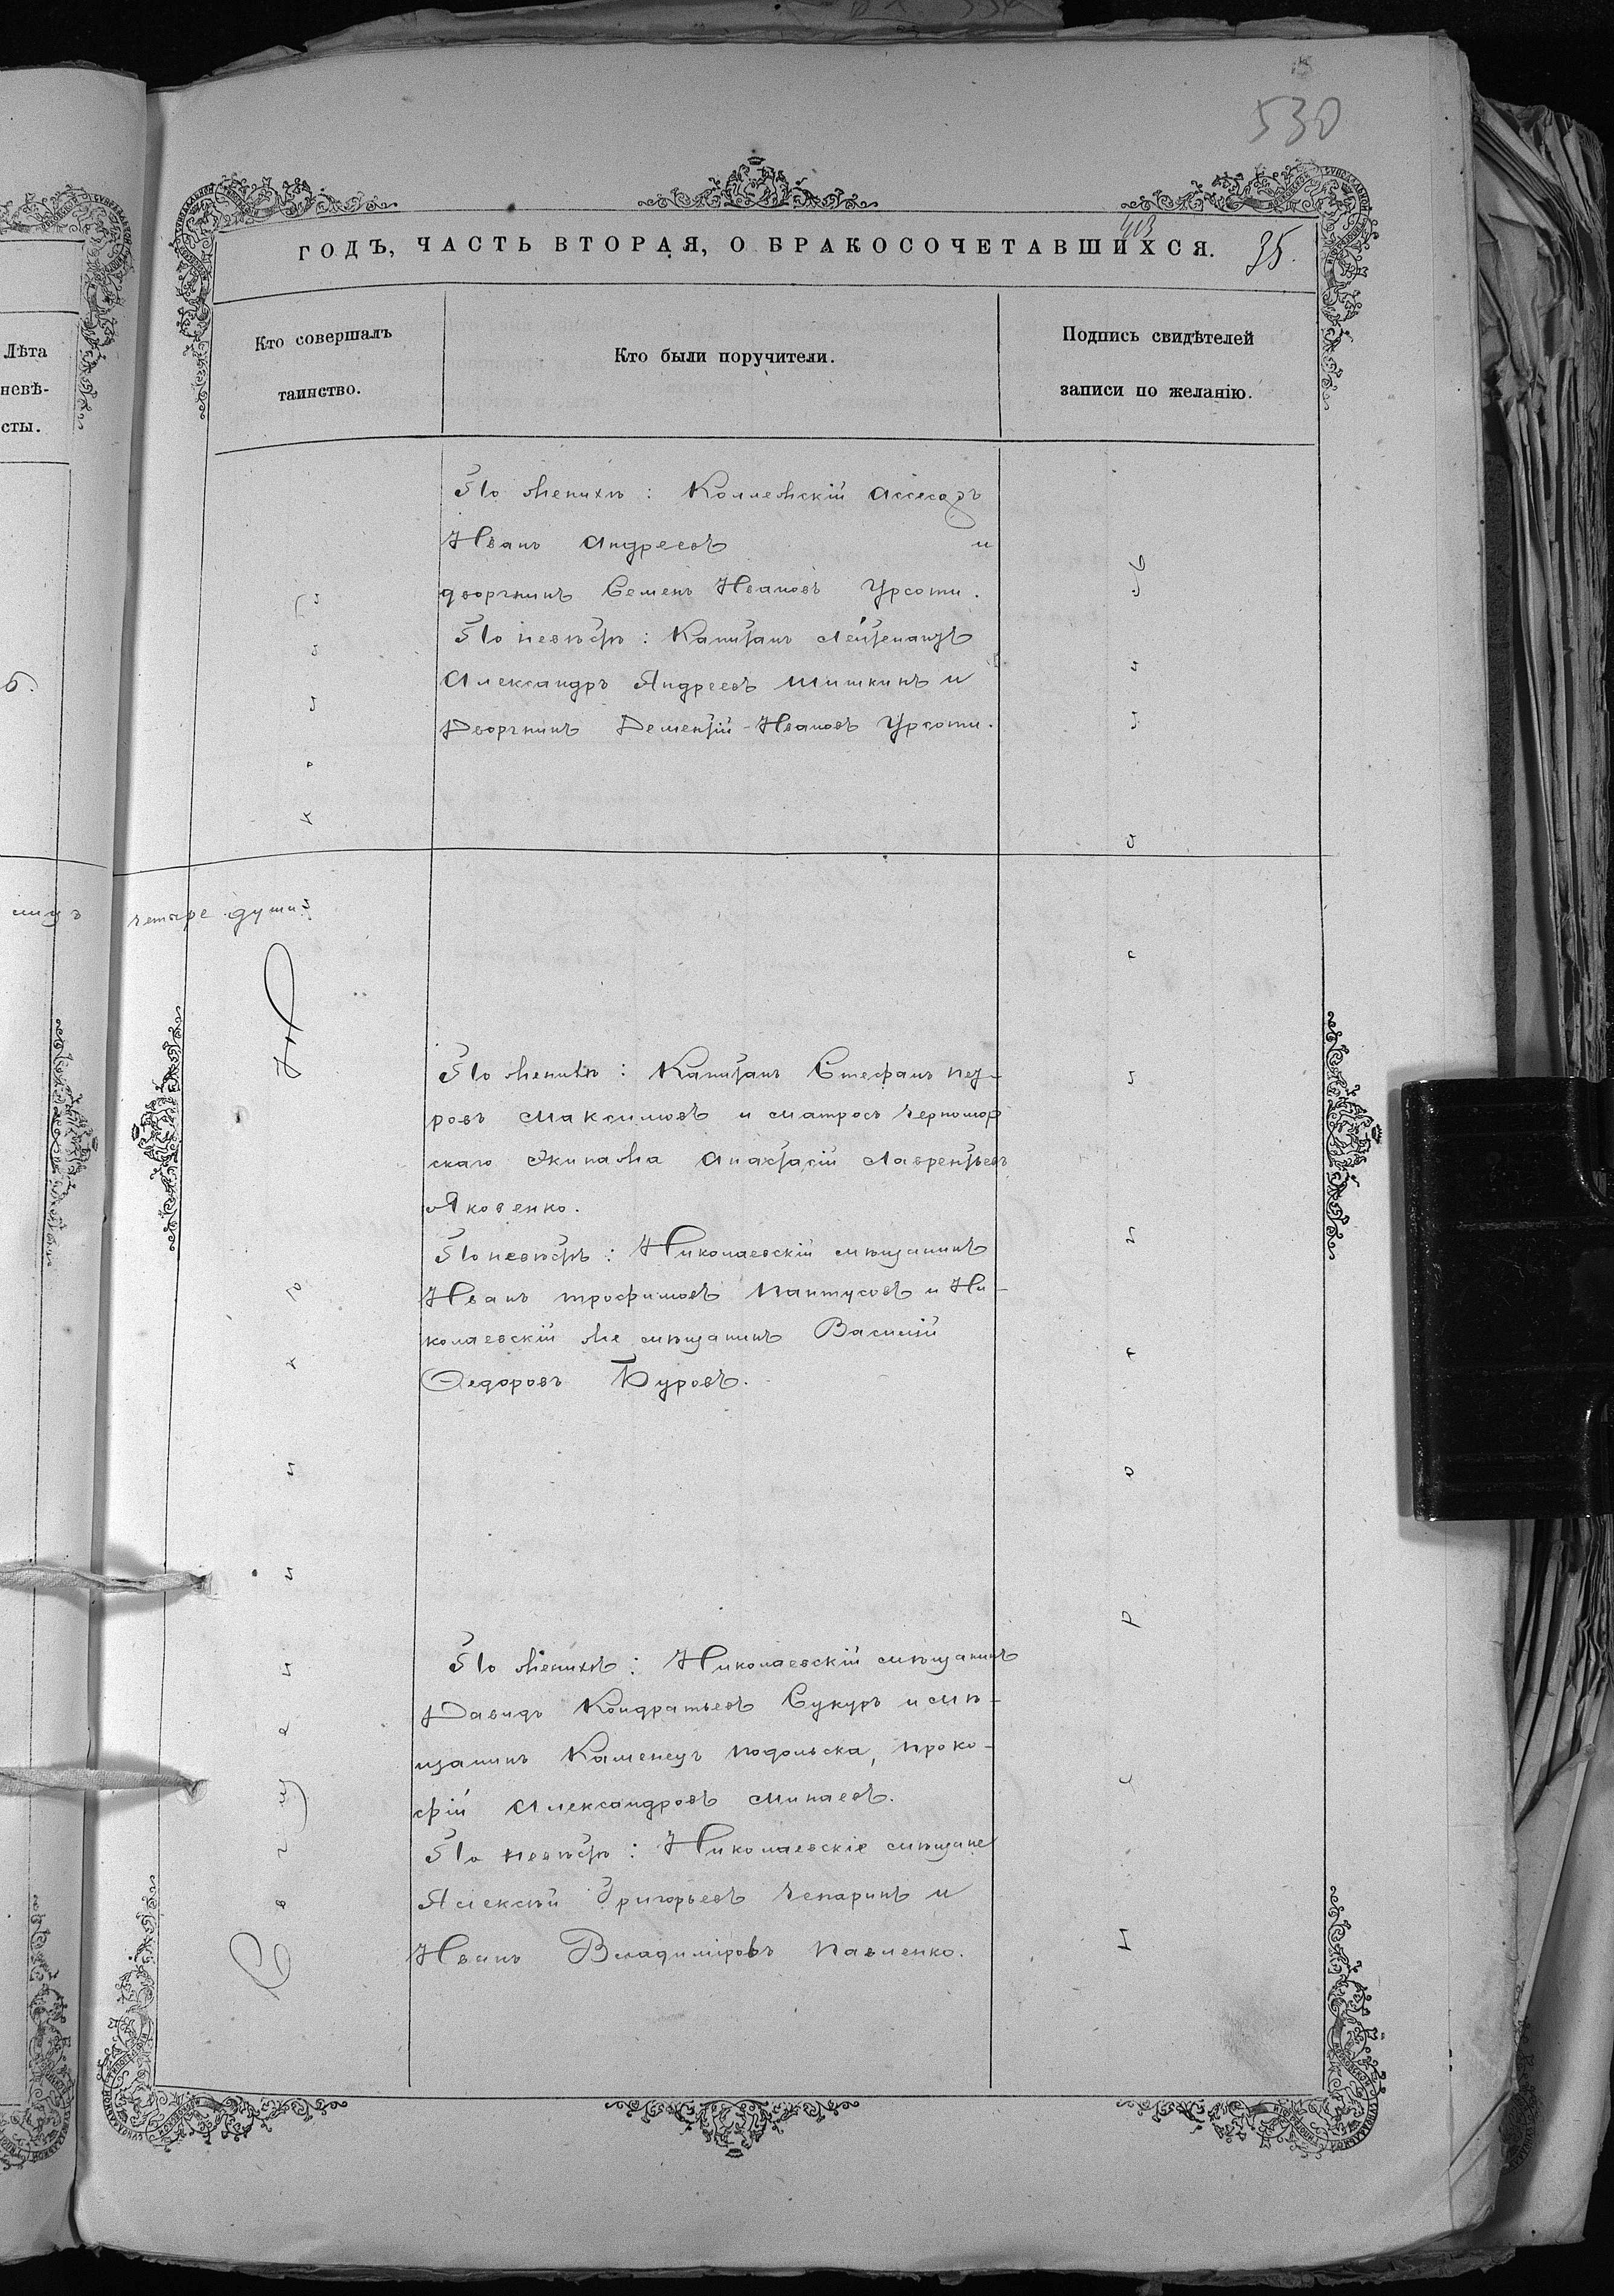 530
413
ГОДЪ, ЧАСТЬ ВТОРАЯ, О БРАКОСОЧЕТАВШИХСЯ. 35.
Лѣта
невѣ-
сты.
Кто совершалъ
таинство.
Кто были поручители.
Подпись свидѣтелей
записи по желанію.
По женихѣ: Коллежскій Ассесоръ
Иванъ Андреевъ и
дворянинъ Семенъ Ивановъ Урсати.
По невѣстѣ: Капитанъ Лейтенантъ
Александръ Андреевъ Шишкинъ и
Дворянинъ Дементій Ивановъ Урсати.
четыре души.
По женихѣ: Капитанъ Стефанъ Пет-
ровъ Максимовъ и матросъ Черномор
скаго Экипажа Анастасій Лаврентьевъ
Яковенко.
По невѣстѣ: Николаевскій мѣщанинъ
Иванъ Трофимовъ Пантусовъ и Ни-
колаевскій же мѣщанинъ Василій
Федоровъ Буровъ.
По женихѣ: Николаевскій мѣщанинъ
Давидъ Кондратьевъ Сукуръ и мѣ-
щанинъ Каменецъ Подольска, Проко-
фій Александровъ Минаевъ.
По невѣстѣ: Николаевскіе мѣщане
Алексѣй Григорьевъ Чепаринъ и
Иванъ Владиміровъ Павленко.